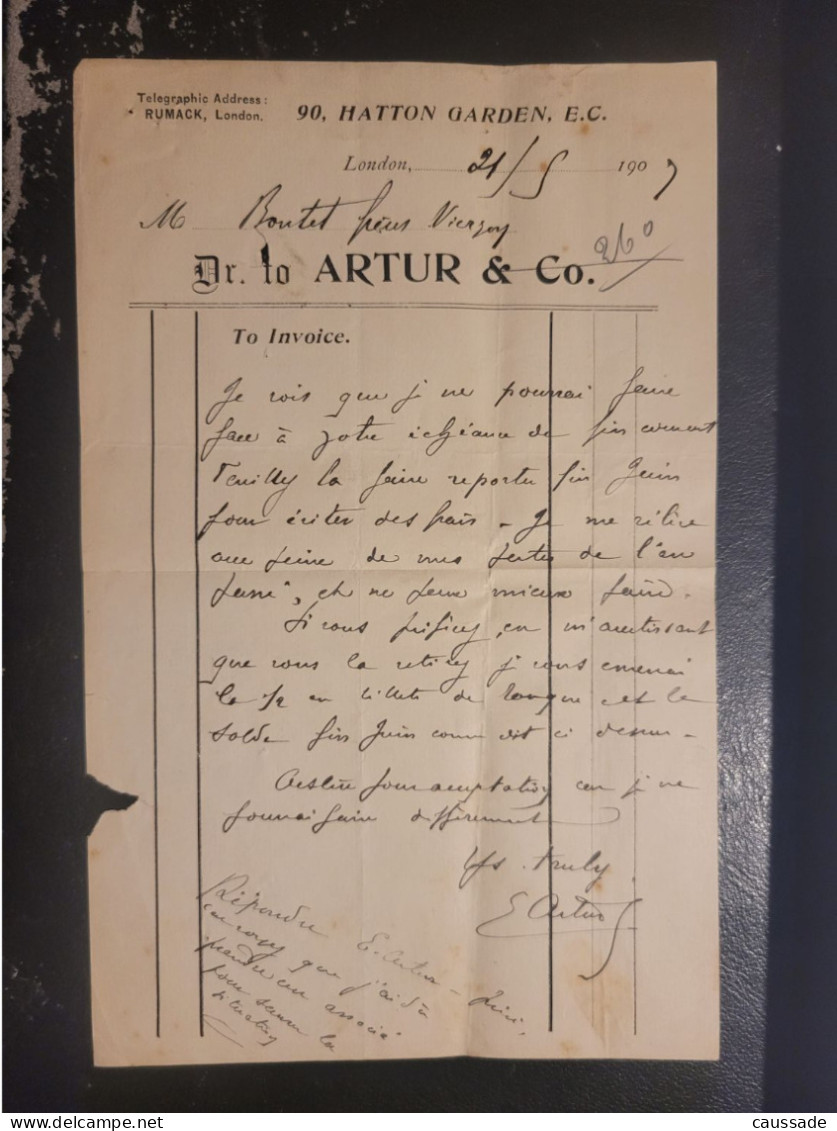 Telegraphic Address:
RUMACK, London.
90, HATTON GARDEN, E.C.
London, 21/5 1907
M Boutet frères Vierzon
260
Dr. to ARTUR & Co.
To Invoice.
Je vois que je ne pourrai faire
face à votre échéance de fin courant
Veuillez la faire reporter fin Juin
pour éviter des frais - Je me relève
avec peine de mes pertes de l'an
passé, et ne peux mieux faire.
Si vous préférez, en m'avertissant
que vous la retirez je vous enverrai
la 1/2 en billets de banque et le
solde fin Juin comme dit ci dessus -
pour acceptation car je ne
pourrai faire différemment
Yrs. truly
E Artur
Répondre E. Artur -
que j'ai dû
prendre un associé
pour sauver la
situation
caussade